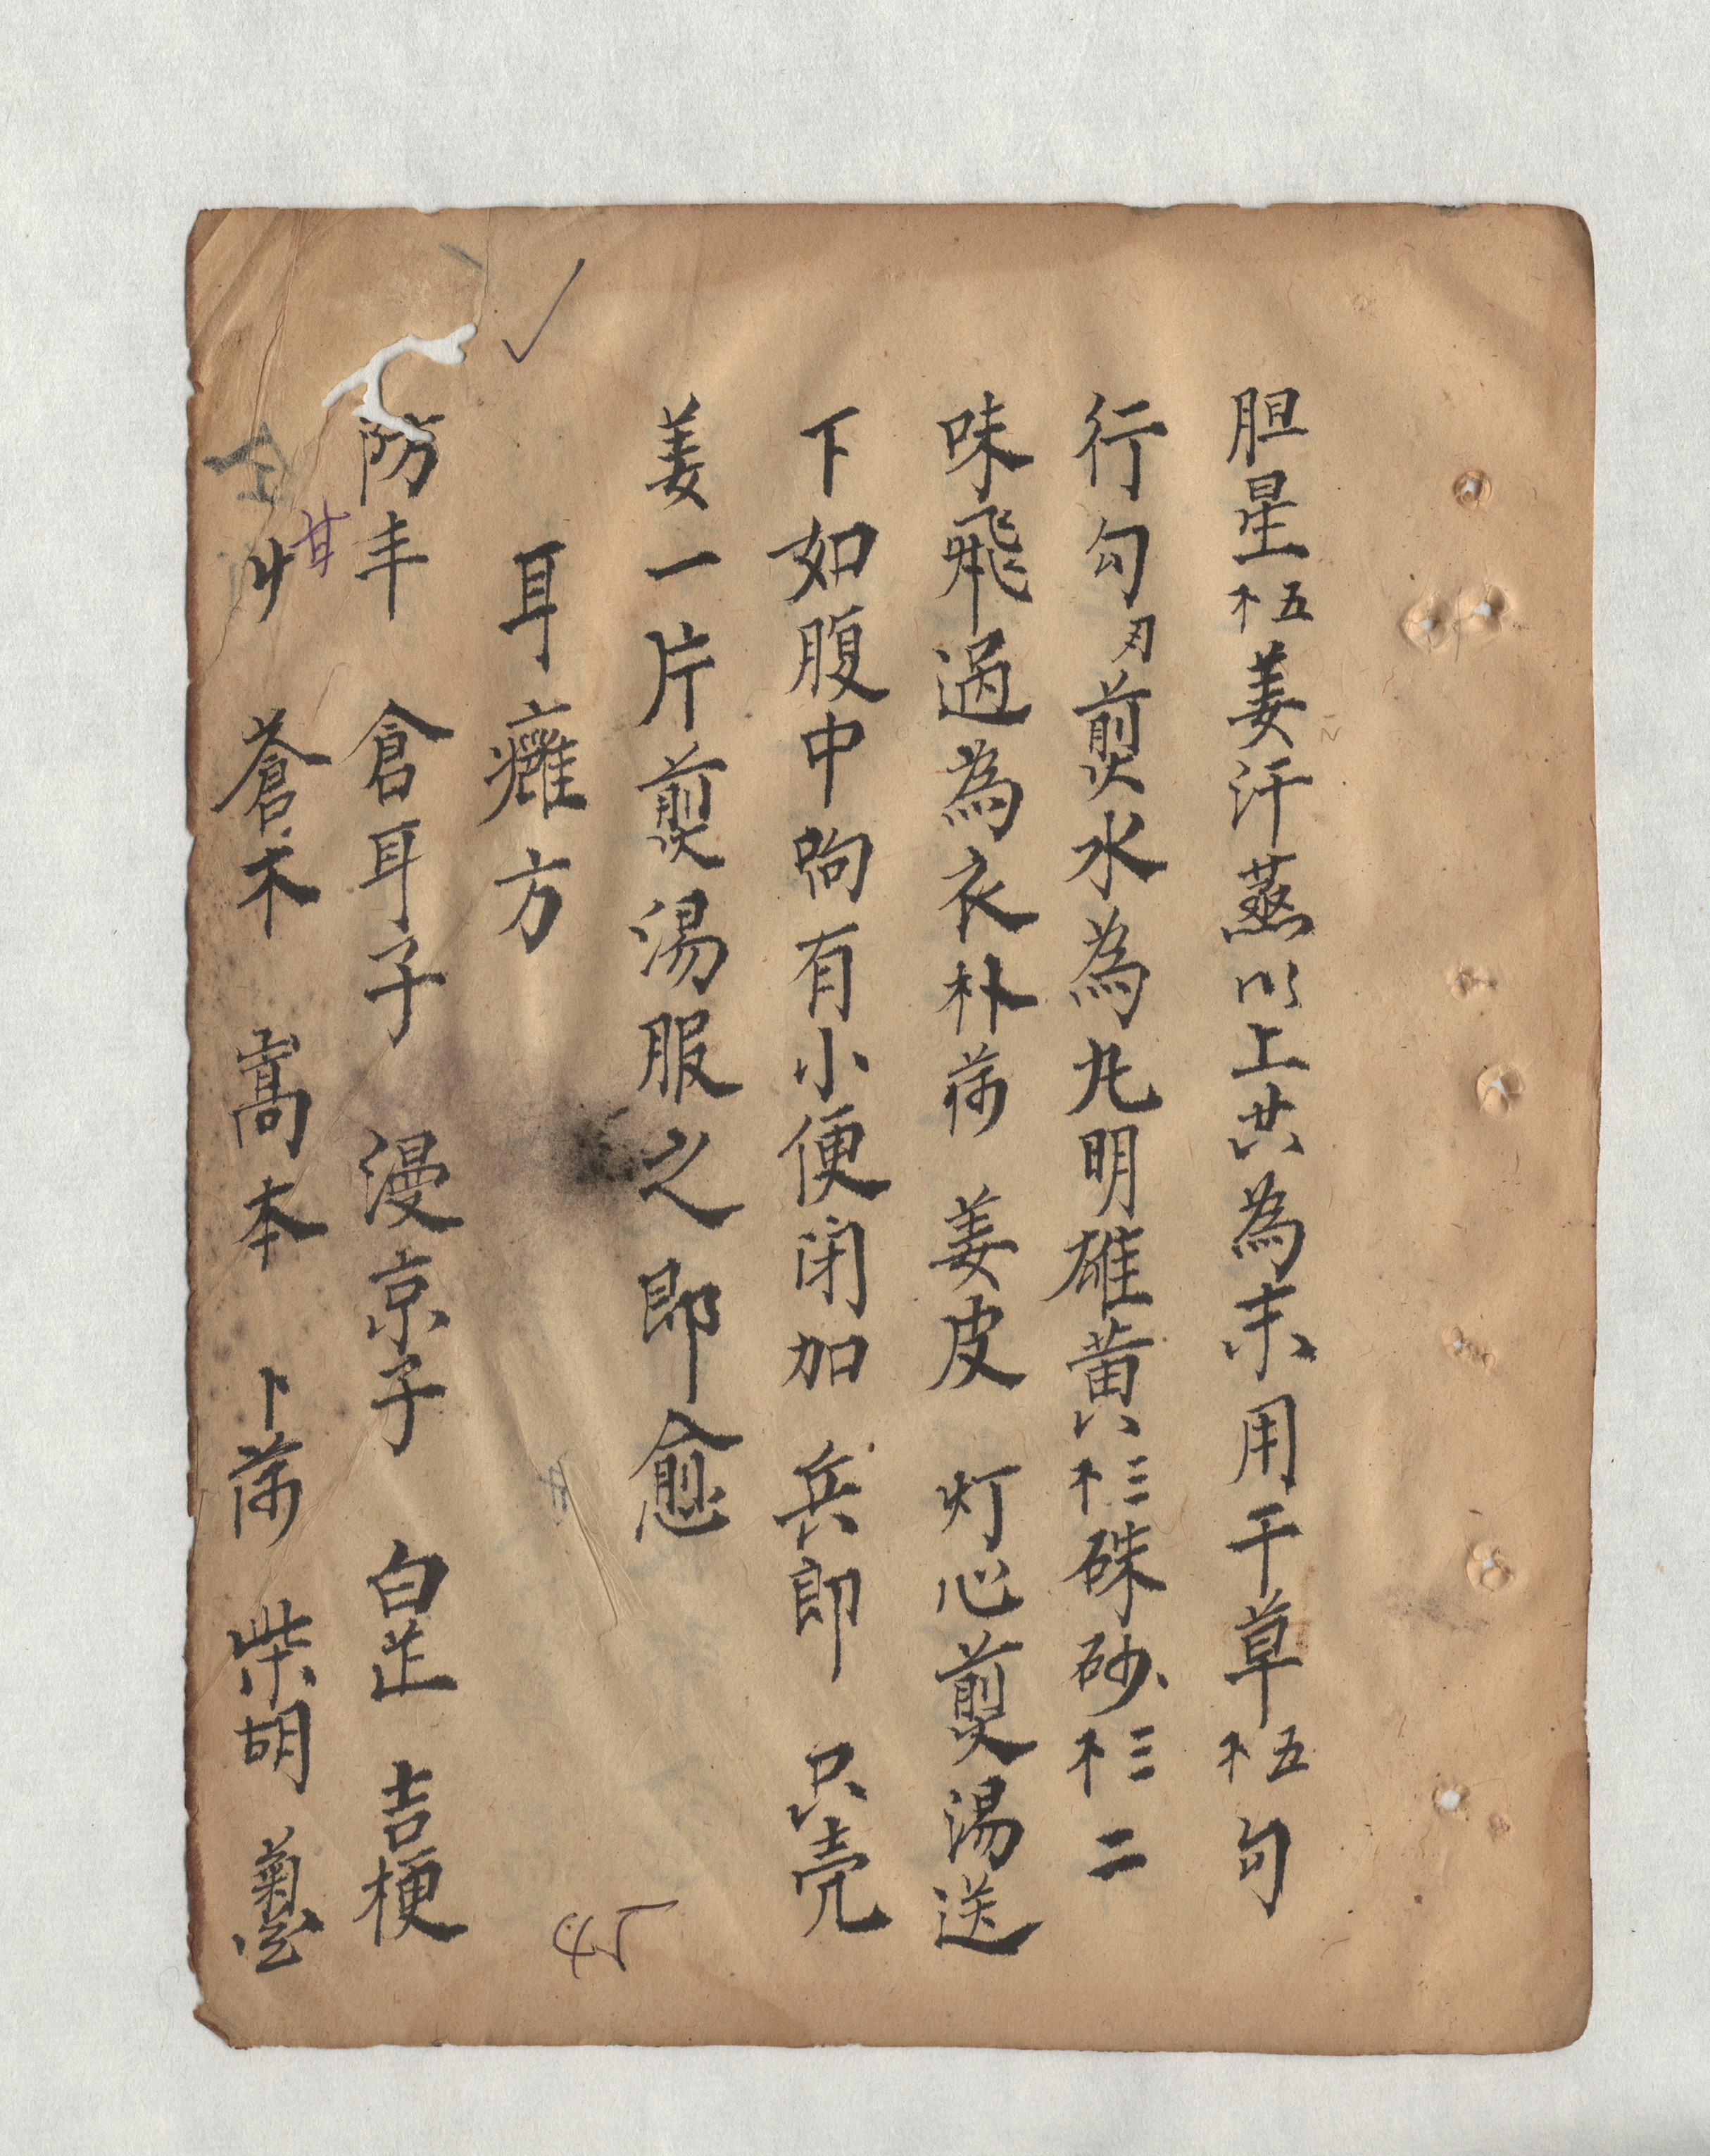 胆星五姜汗蒸以上共為末用干草五勾
行勾刃煎水為丸明雄黄三硃砂三二
味飛過為衣朴荷姜皮灯心煎湯送
下如腹中响有小便闭加兵郎只壳
姜一片煎湯服之即愈
耳癰方
防丰倉耳子漫京子白芷吉梗
甘
蒼术
蒿本卜荷柴胡
45